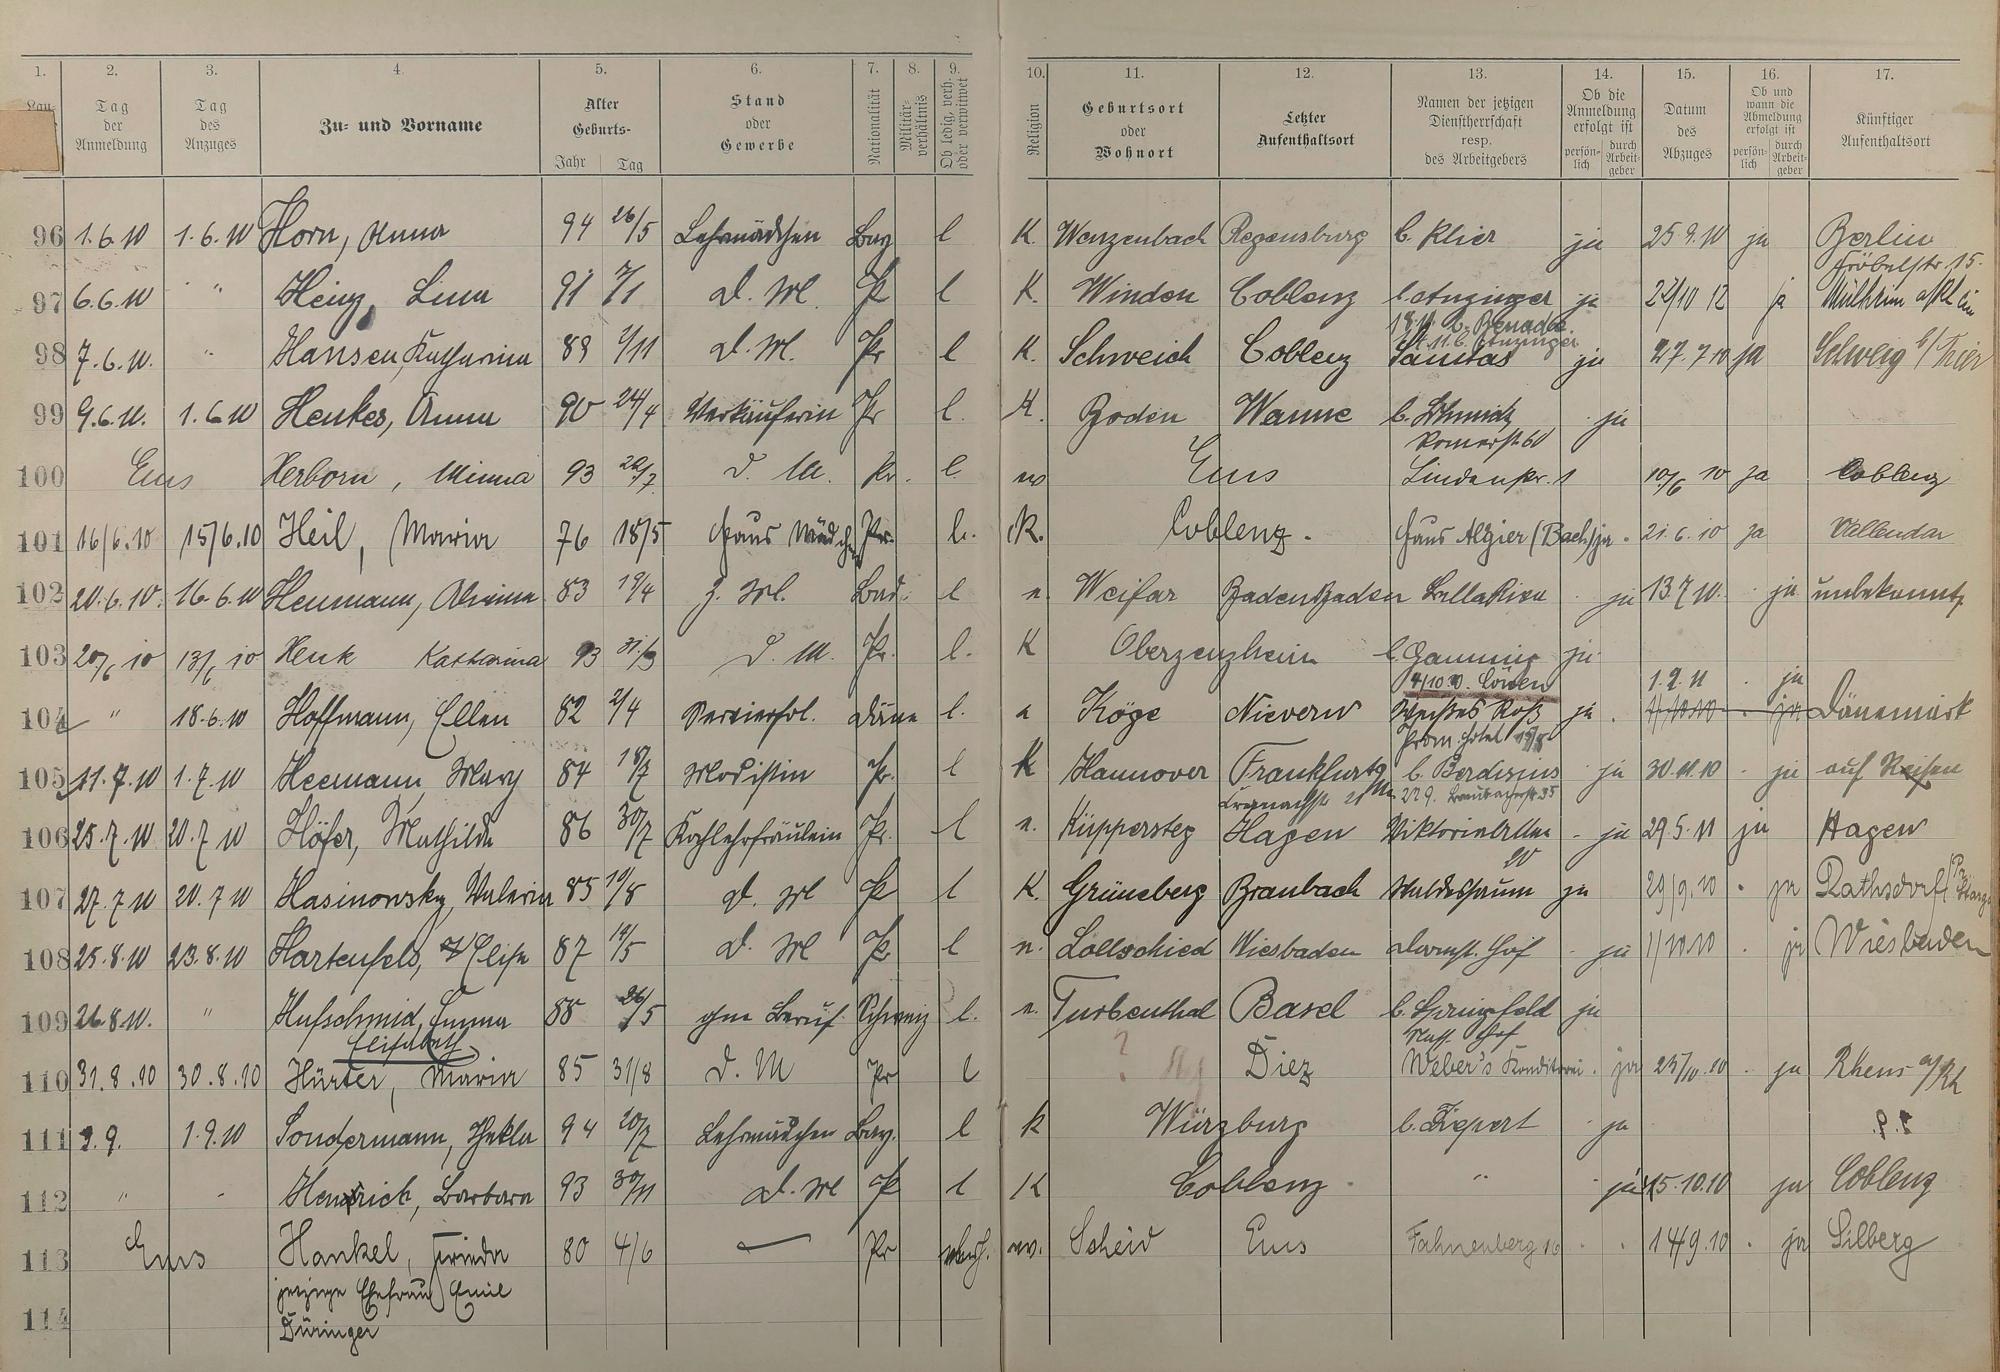 1. 2. 3. 4. 5. 6. 7. 8. 9. 10. 11. 12. 13. 14. 15. 16. 17.
Tag der Anmeldung
Tag des Anzuges
Zu- und Vorname
Alter
Geburts-
Jahr Tag
Stand oder Gewerbe
Nationalität
Militärverhältnis
Ob ledig, verh. oder verwitwet
Religion
Geburtsort oder Wohnort
Letzter Aufenthaltsort
Namen der jetzigen Dienstherrschaft resp. des Arbeitgebers
Ob die Anmeldung erfolgt ist
persönlich durch Arbeitgeber
Datum des Abzuges
Ob und wann die Abmeldung erfolgt ist
persönlich durch Arbeitgeber
Künftiger Aufenthaltsort
96 1.6.10 1.6.10 Horn, Anna 94 26/5 Lehrmädchen Bay l K. Wenzenbach Regensburg b. Klier ja 25.9.10 ja Berlin
Fröbelstr. 15.
97 6.6.10 " Heinz, Lina 91 7/1 D. M. Pr l K. Winden Coblenz b. Anzinger ja 10 12 ja Mülheim a/Rhein
98 7.6.10. " Hansen, Katharina 89 1/11 D. M. Pr l K. Schweich Coblenz Sanitas ja 27.7.10 ja Schweig b/Trier
99 9.6.10. 1.6.10 Henkes, Anna 90 24/4 Verkäuferin Pr l. K. Boden Wanne b. Schmidt ja
Römerstr. 60
100 Ems Herborn, Minna 93 D. M. Pr. l. Ems Lindenstr. 1 10/6 10 ja Coblenz
101 16/6.10 15/6.10 Heil, Maria 76 18/5 Haus Mädchen Pr. l. K. Coblenz. Haus Algier (Bach) ja 21.6.10 ja Vallendar
102 20.6.10. 16.6.10 Heumann, 83 19/4 Z. Ml. Bad. l n. Baden Baden Villa Riea ja 13.7.10. ja unbekannt
103 20/6 10 13/6 10 Henk Katharina 93 31/3 D. M. Pr. l. K Oberzenzheim ja
4/10.10. Löwen 1.2.11 ja
104 " 18.6.10 Hoffmann, Ellen 82 2/4 Servierfrl. Däne l. Köge Nievern Weißes Roß ja. Dänemark
105 11.7.10 1.7.10 Heemann, Mary 84 18/7 Modistin Pr. l K Hannover Frankfurt ja 30.11.10 ja auf Reisen
106 25.7.10 20.7.10 Höfer, Mathilde 86 30/7 Kochlehrfräulein Pr. l n. Küppersteg Hagen ja 29.5.11 ja Hagen
107 27.7.10 20.7.10 Hasinowsky, Valerie 85 19/8 D. Ml Pr l K. Grüneberg Braubach Waldessaum ja 29/9.10 ja Rathsdorf
108 25.8.10 23.8.10 Hartenfels, Elise 87 14/5 D. Ml Pr l n. Lollschied Wiesbaden Darmst. Hof ja 1/10.10 ja Wiesbaden
109 26.8.10. " Hufschmid, Emma 88 26/5 ohne Beruf Schweiz l. n. Turbenthal Basel b. Springfeld ja
Elisabeth
110 31.8.10 30.8.10 Hürter, Maria 85 31/8 D. M Pr l ? Diez Weber's Konditorei. ja 25/10.10 ja Rhens a/Rh
111 3.9. 1.9.10 Sondermann, Thekla 94 20/7 Lehrmädchen Bay. l K Würzburg b. Ziepert ja
112 " Heinrich, Barbara 93 30/11 D. Ml Pr l K Coblenz " ja 15.10.10 ja Coblenz
113 Ems Hankel, Frieda 80 4/6 — Pr verh. ev. Scheid Ems Fahnenberg 16 14/9.10 ja Silberg
jetzige Ehefrau Emil
114 Düringer